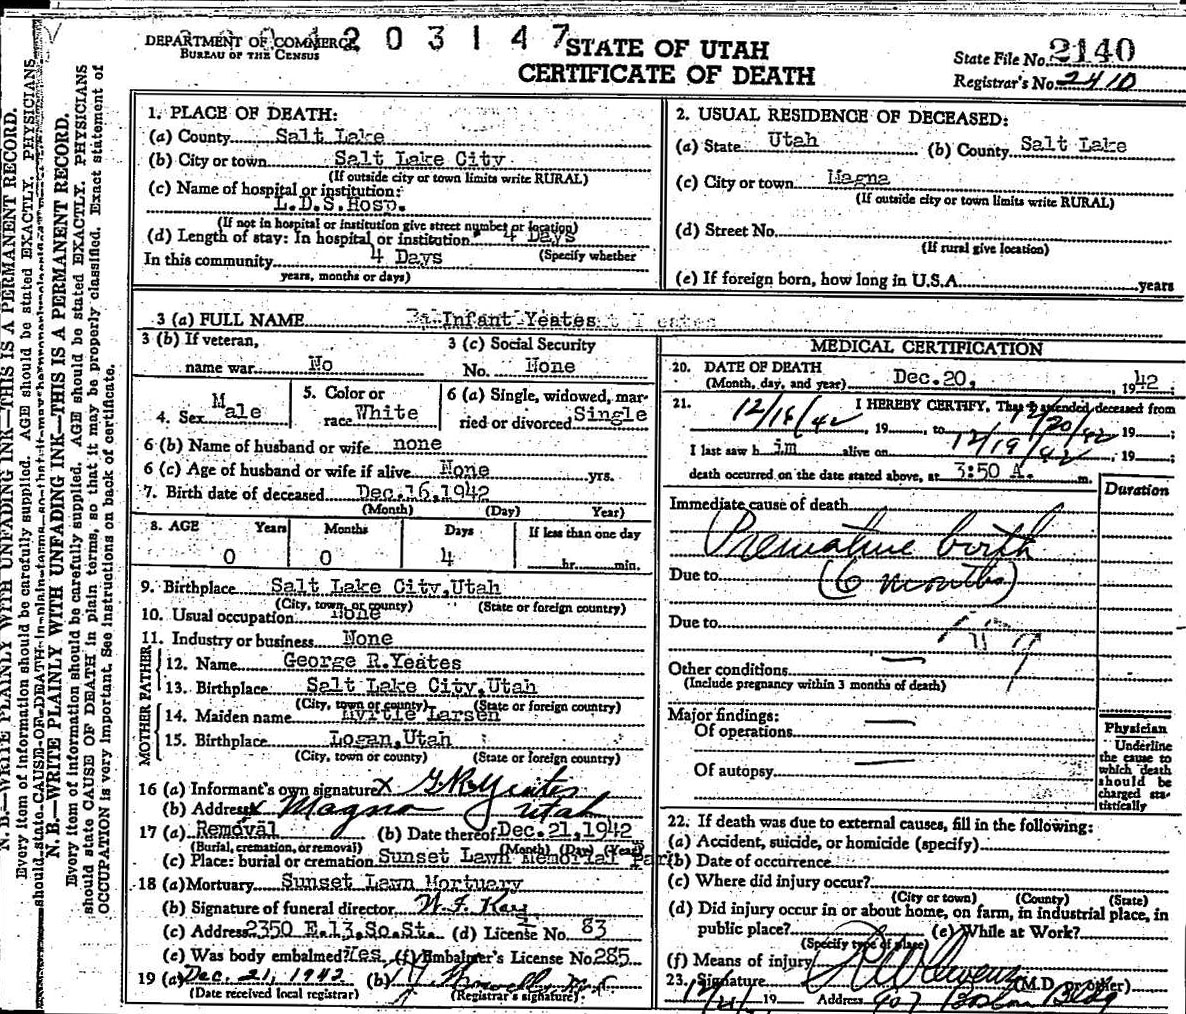 DEPARTMENT OF COMMERCE
BUREAU OF THE CENSUS
203147
STATE OF UTAH
CERTIFICATE OF DEATH
State File No. 2140
Registrar's No. 2410
N. B.—WRITE PLAINLY WITH UNFADING INK—THIS IS A PERMANENT RECORD.
Every item of information should be carefully supplied. AGE should be stated EXACTLY. PHYSICIANS
N. B.—WRITE PLAINLY WITH UNFADING INK—THIS IS A PERMANENT RECORD.
Every item of information should be carefully supplied. AGE should be stated EXACTLY. PHYSICIANS
should state CAUSE OF DEATH in plain terms, so that it may be properly classified. Exact statement of
OCCUPATION is very important. See instructions on back of certificate.
1. PLACE OF DEATH:
(a) County Salt Lake
(b) City or town Salt Lake City
(If outside city or town limits write RURAL)
(c) Name of hospital or institution:
L.D.S.Hosp.
(If not in hospital or institution give street number or location)
(d) Length of stay: In hospital or institution 4 Days
(Specify whether
In this community 4 Days
years, months or days)
2. USUAL RESIDENCE OF DECEASED:
(a) State Utah (b) County Salt Lake
(c) City or town Magna
(If outside city or town limits write RURAL)
(d) Street No.
(If rural give location)
(e) If foreign born, how long in U.S.A. years
3 (a) FULL NAME Infant Yeates
3 (b) If veteran, name war No
3 (c) Social Security No. None
4. Sex Male
5. Color or race White
6 (a) Single, widowed, married or divorced Single
6 (b) Name of husband or wife none
6 (c) Age of husband or wife if alive None yrs.
7. Birth date of deceased Dec.16,1942
(Month) (Day) Year)
8. AGE Years Months Days If less than one day
0 0 4 hr. min.
9. Birthplace Salt Lake City,Utah
(City, town, or county) (State or foreign country)
10. Usual occupation None
11. Industry or business None
FATHER
12. Name George R.Yeates
13. Birthplace Salt Lake City,Utah
(City, town or county) (State or foreign country)
MOTHER
14. Maiden name Myrtle Larsen
15. Birthplace Logan,Utah
(City, town or county) (State or foreign country)
16 (a) Informant's own signature x G.R. Yeates
(b) Address x Magna Utah
17 (a) Removal (b) Date thereof Dec.21,1942
(Burial, cremation, or removal) (Month) (Day) (Year)
(c) Place: burial or cremation Sunset Lawn Memorial Park
18 (a) Mortuary Sunset Lawn Mortuary
(b) Signature of funeral director
(c) Address 2350 E.13.So.St. (d) License No. 83
(e) Was body embalmed? Yes (f) Embalmer's License No. 285
19 (a) Dec. 21, 1942 (b)
(Date received local registrar) (Registrar's signature)
MEDICAL CERTIFICATION
20. DATE OF DEATH
(Month, day, and year) Dec.20, 1942
21. I HEREBY CERTIFY, That I attended deceased from
12/16/42, 19 , to 12/20/42 19 ;
I last saw h im alive on 12/19/42, 19 ;
death occurred on the date stated above, at 3:50 A. m.
Duration
Immediate cause of death
Premature birth
Due to (6 months)
Due to
Other conditions
(Include pregnancy within 3 months of death)
Major findings:
Of operations
Of autopsy
Physician
Underline
the cause to
which death
should be
charged sta-
tistically
22. If death was due to external causes, fill in the following:
(a) Accident, suicide, or homicide (specify)
(b) Date of occurrence
(c) Where did injury occur?
(City or town) (County) (State)
(d) Did injury occur in or about home, on farm, in industrial place, in
public place? (e) While at Work?
(Specify type of place)
(f) Means of injury
23. Signature (M.D. or other)
12/21/ 19 Address 407 Boston Bldg